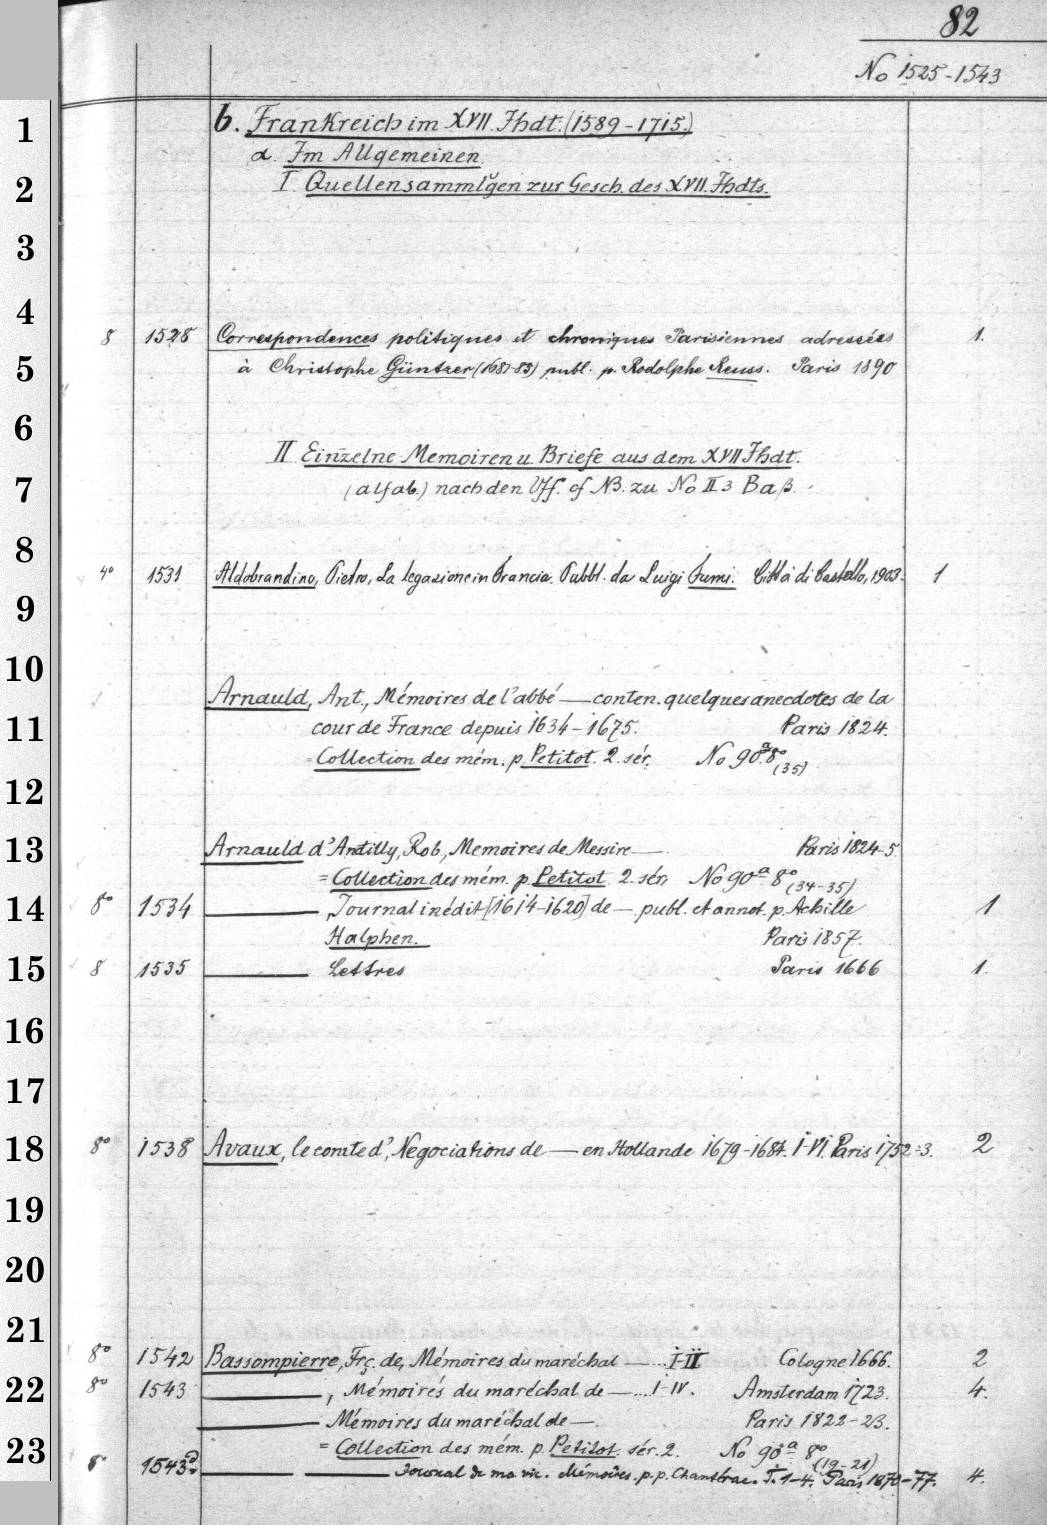 82
No 1525-1543
b. Frankreich im XVII. Jhdt. (1589-1715.)
α. Im Allgemeinen
I Quellensammlgen zur Gesch. des XVII. Jhdts.
8 1528 Correspondences politiques et chroniques Parisiennes adressées 1.
à Christophe Güntzer (1681-85) publ. p. Rodolphe Reuss. Paris 1890
II Einzelne Memoiren u. Briefe aus dem XVII Jhdt.
(alfab.) nach den Vff. cf NB. zu No II 3 Baß.
4° 1531 Aldobrandino, Pietro, La legazione in Francia. Pubbl. da Luigi Fumi. Città di Castello, 1903. 1
Arnauld, Ant., Mémoires de l'abbé — conten. quelques anecdotes de la
cour de France depuis 1634-1675. Paris 1824.
= Collection des mém. p. Petitot. 2. sér. No 90a 8° (35)
Arnauld d'Antilly, Rob., Memoires de Messire — Paris 1824-5
= Collection des mém. p. Petitot 2. sér. No 90a 8° (34-35)
8° 1534 —, Journal inédit [1614-1620] de — publ. et annot. p. Achille 1
Halphen. Paris 1857.
8 1535 — Lettres Paris 1666 1.
8° 1538 Avaux, le comte d', Negociations de — en Hollande 1679-1684. I-VI. Paris 1752-3. 2
8° 1542 Bassompierre, Frç. de, Mémoires du maréchal — ... I-II Cologne 1666. 2
8° 1543 —, Mémoires du maréchal de — ... I-IV. Amsterdam 1723. 4.
— Mémoires du maréchal de —. Paris 1822-23.
= Collection des mém. p. Petitot. sér. 2. No 90a 8° (19-21)
8° 1543a — — Journal de ma vie. Mémoires. p. p. Chantérac. T. 1-4. Paris 1870-77. 4.
1
2
3
4
5
6
7
8
9
10
11
12
13
14
15
16
17
18
19
20
21
22
23